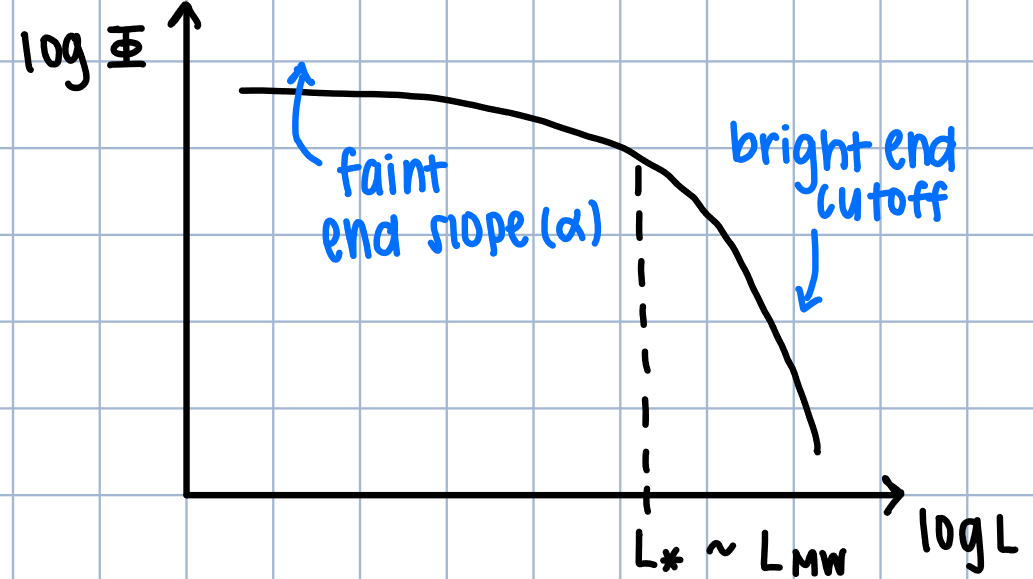 log Φ
faint
end slope (α)
bright end
cutoff
L* ~ L_MW
log L